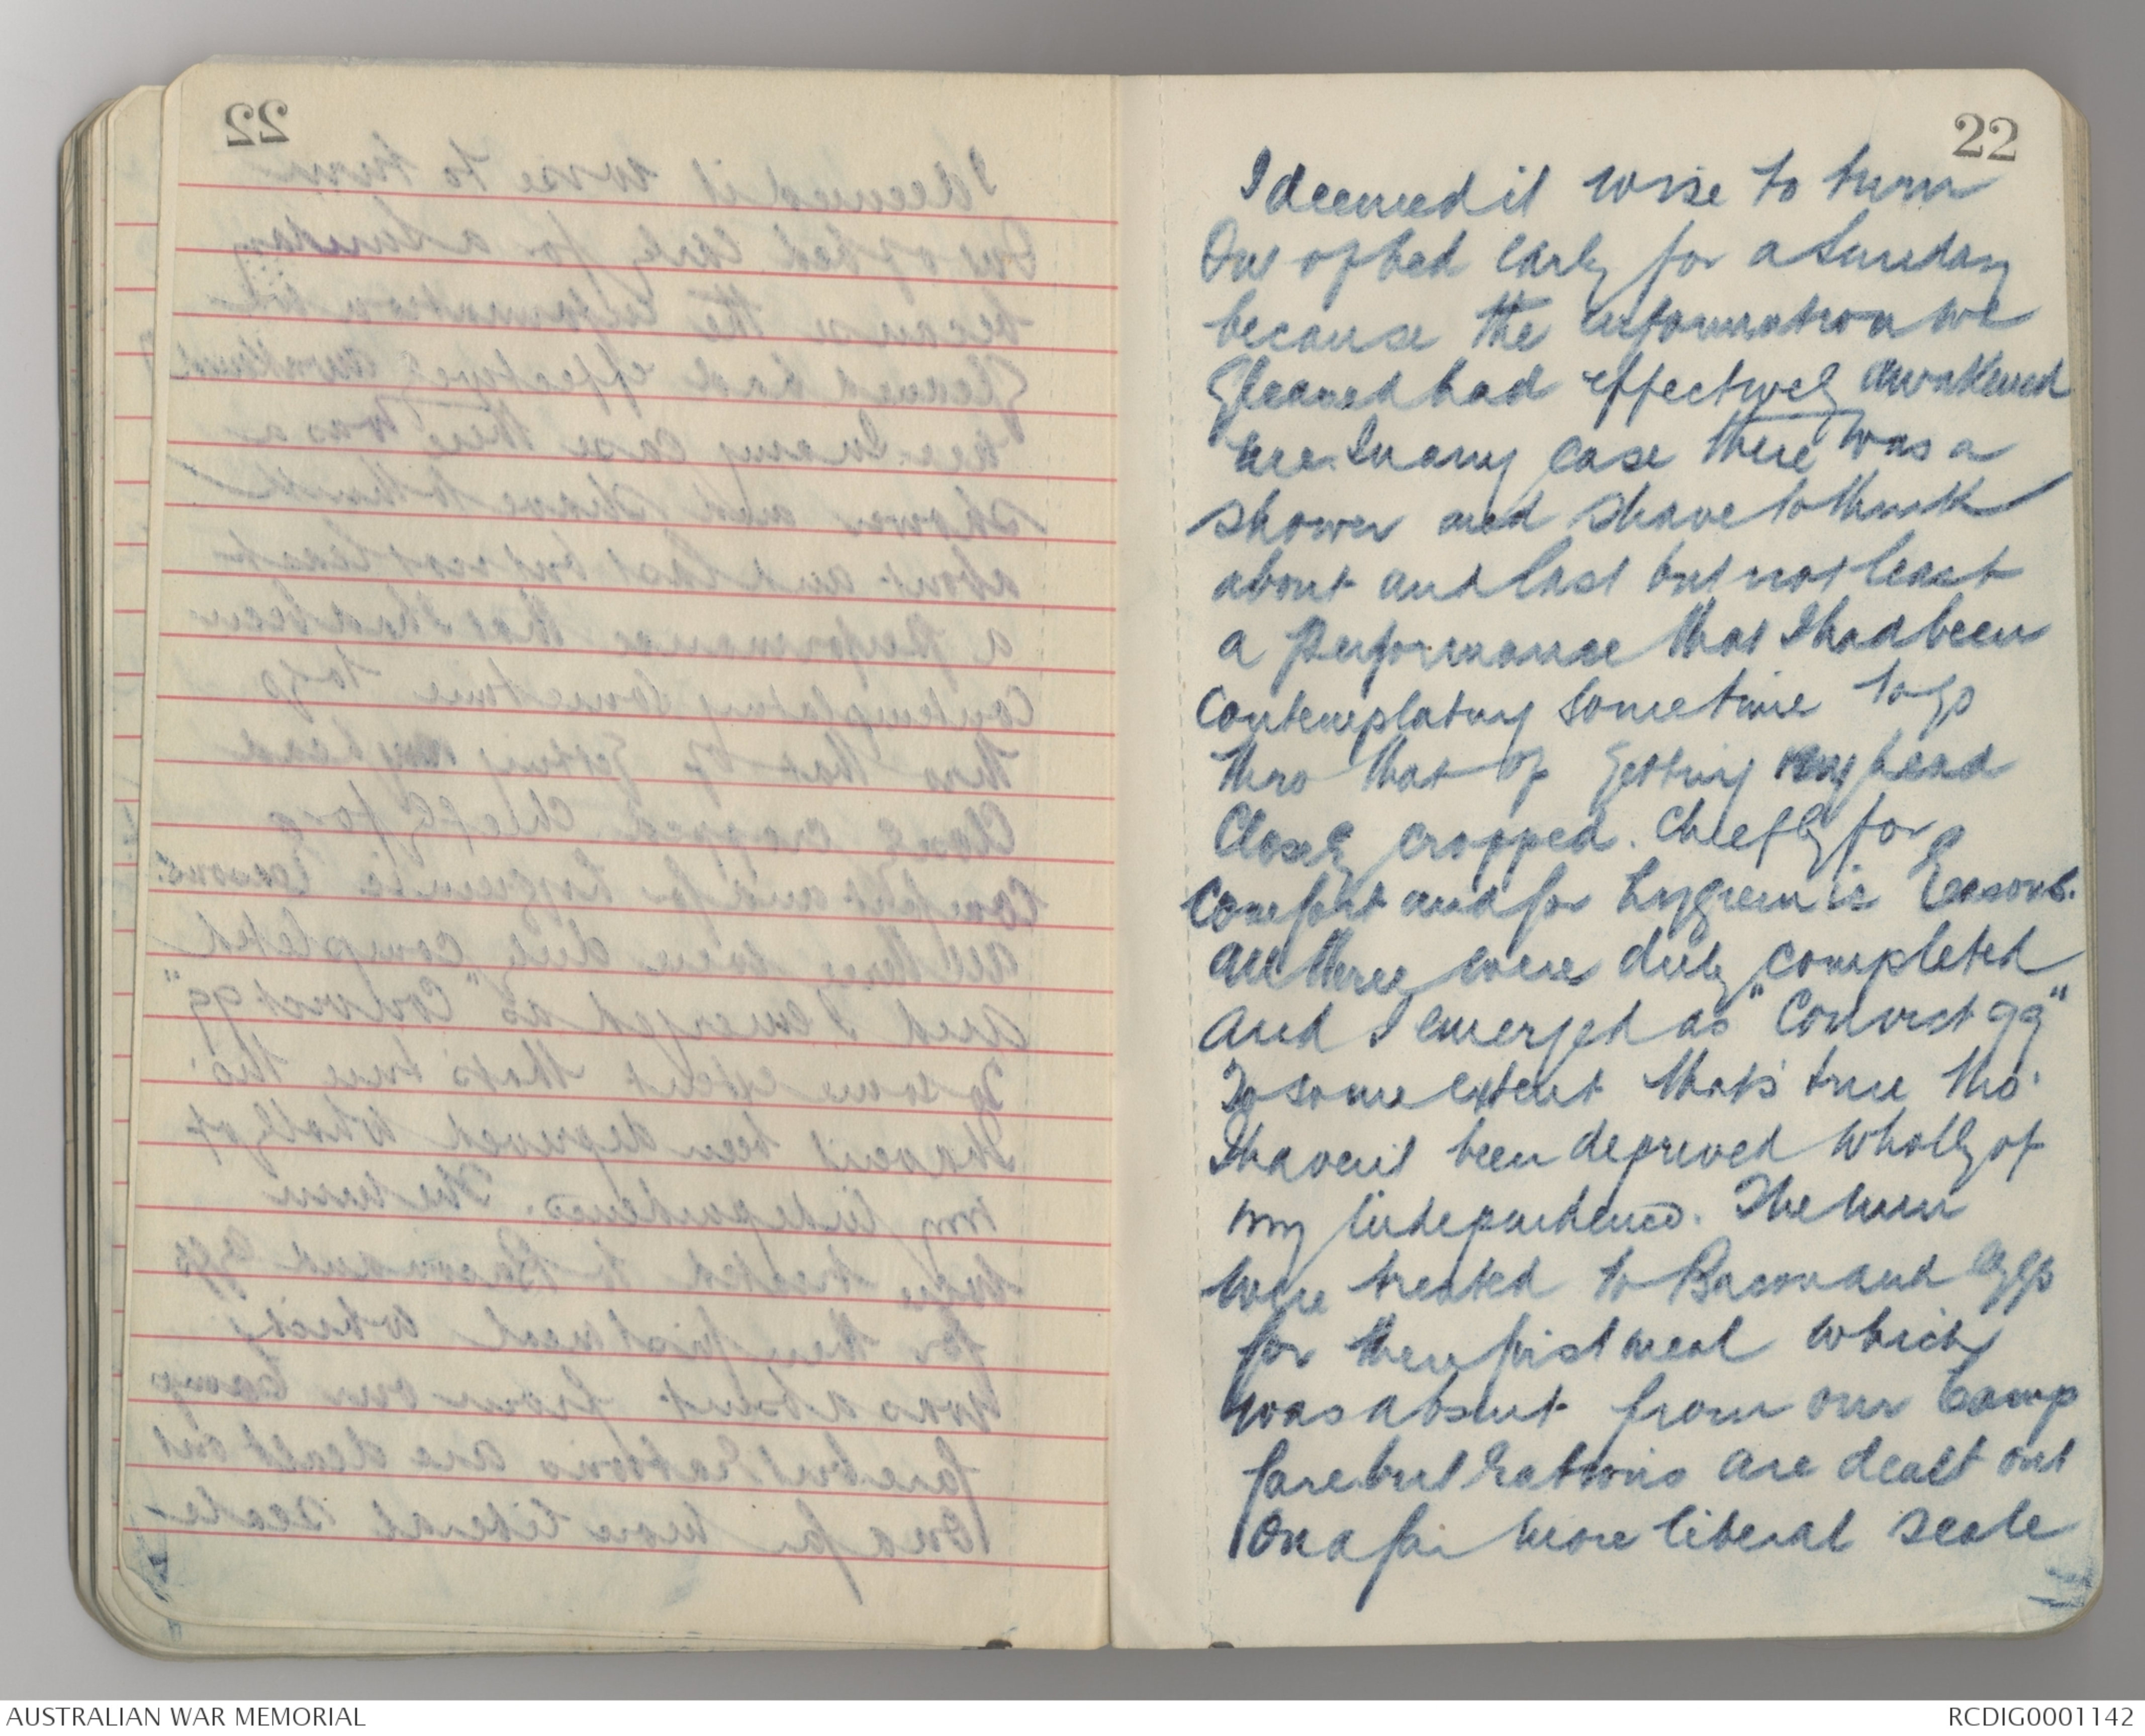 22
I deemed it wise to turn
Out of bed early for a Sunday
because the information we
gleaned had effectively awakened
me. In any case there was a
shower and shave to think
about and last but not least
a performance that I had been
contemplating sometime to go
thro that of getting my head
closely cropped. Chiefly for
comfort and for hygienic reasons.
All three were duly completed
and I emerged as "Convict 99"
To some extent that's true tho'
I haven't been deprived wholly of
my independence. The men
were treated to Bacon and Eggs
for their first meal which
was absent from our Camp
fare but rations are dealt out
On a far more liberal scale
AUSTRALIAN WAR MEMORIAL
RCDIG0001142